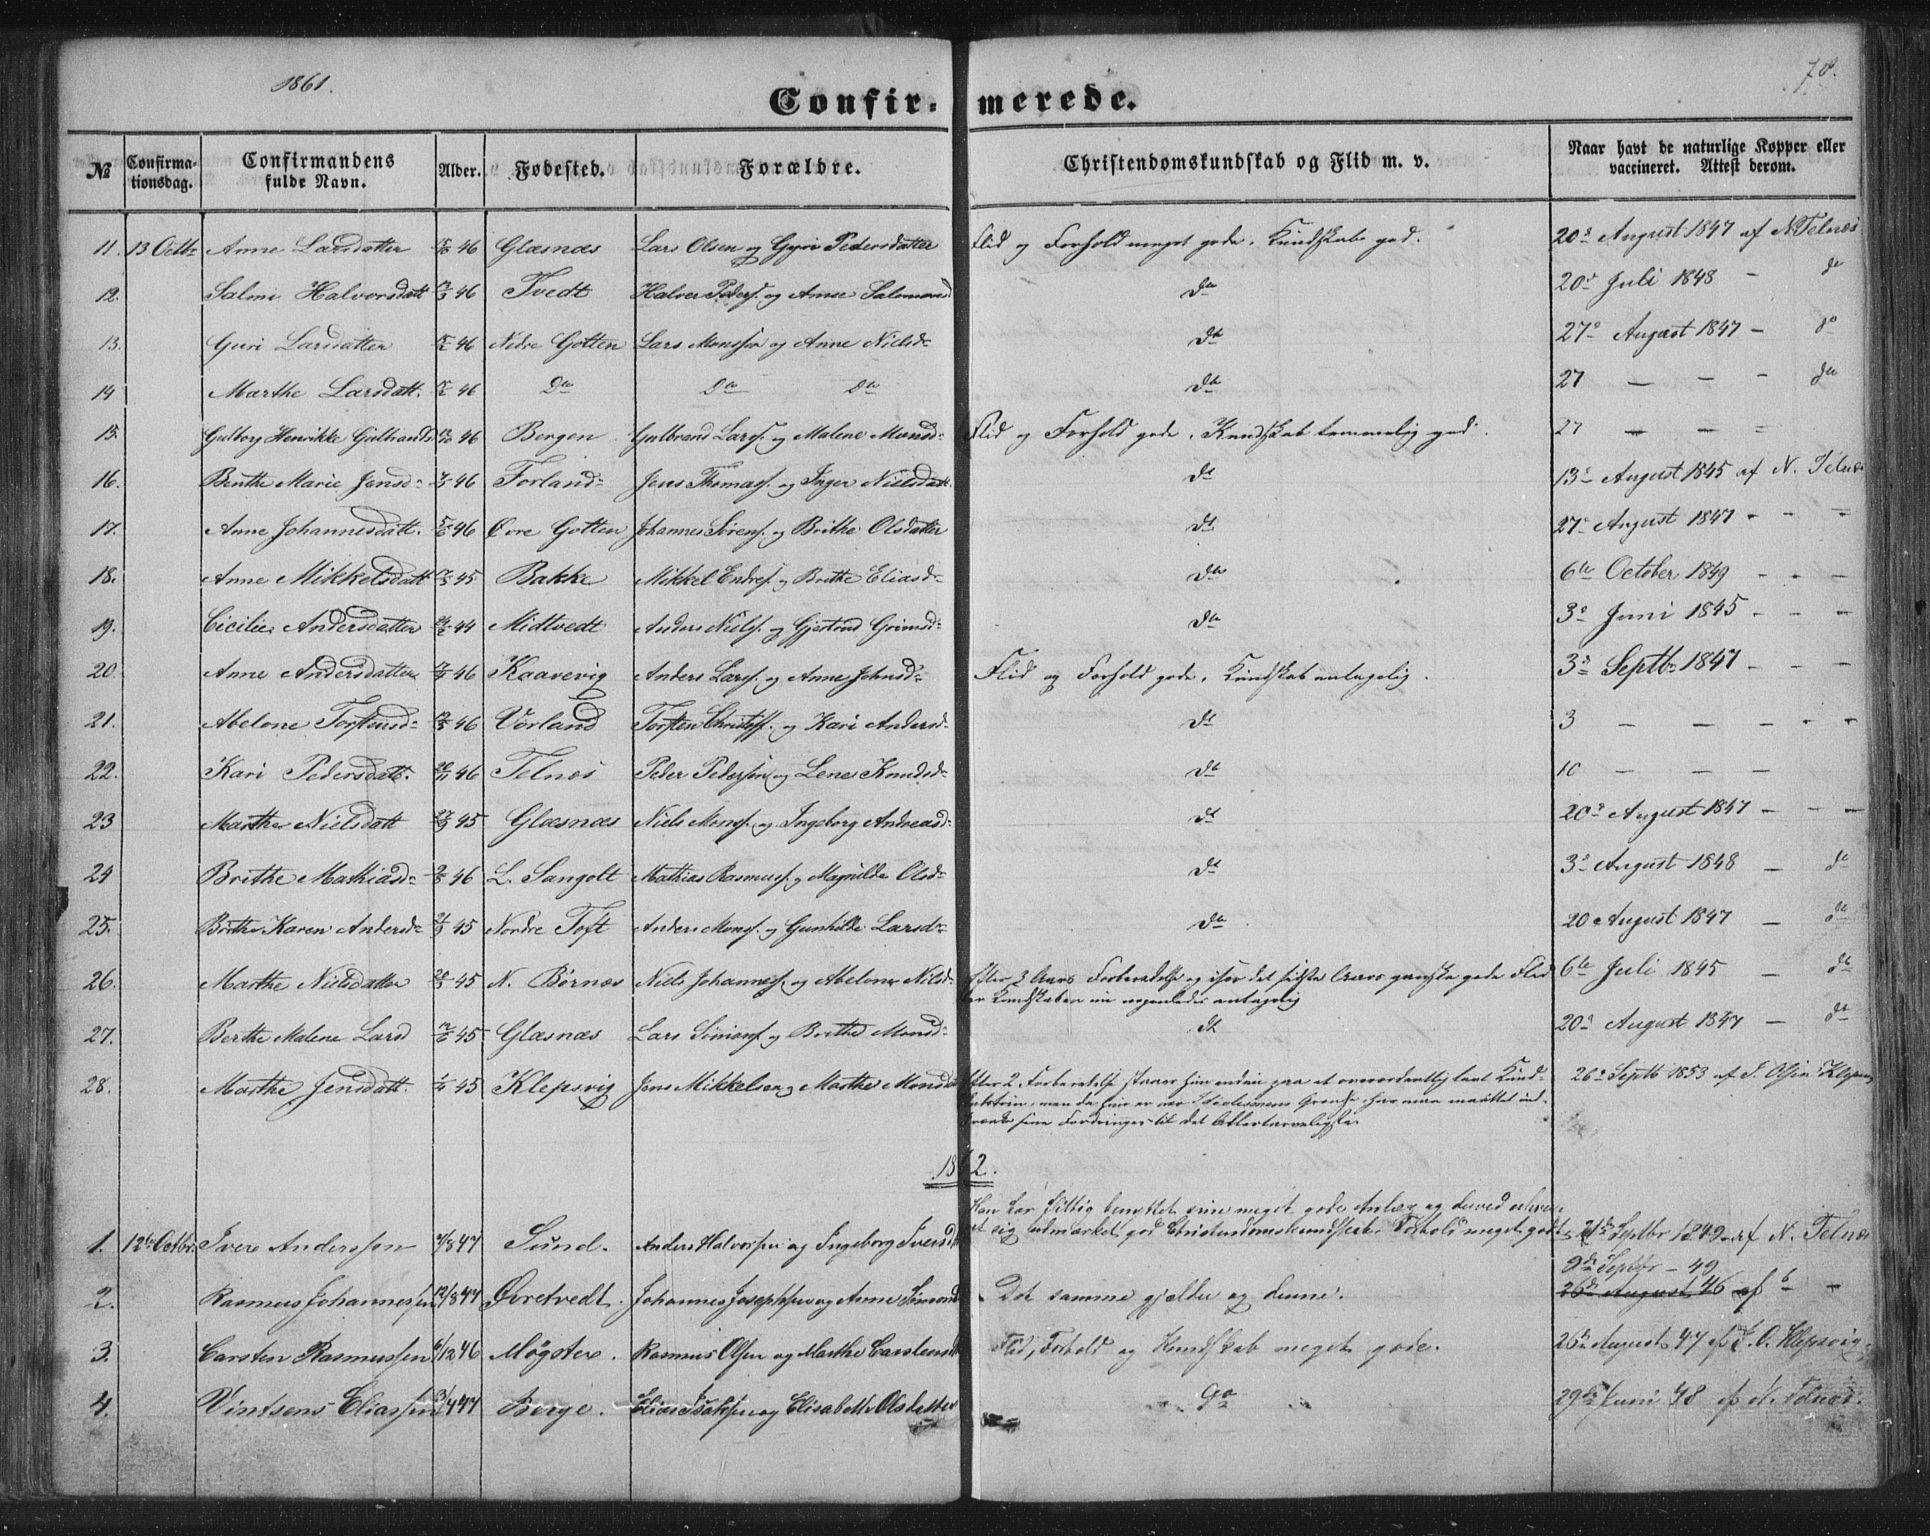 1861.
78.
Confir- merede.
№ Confirma-tionsdag. Confirmandens fulde Navn. Alder. Fødested. Forældre. Christendomskundskab og Flid m. v. Naar havt de naturlige Kopper eller vaccineret. Attest derom.
11. 13 Octbr Anne Larsdatter 46 Glæsnæs Lars Olsen og Gyri Pedersdatter Flid og Forhold meget gode, Kundskab god. 20de August 1847 af N Telnæs
12. Salmi Halvorsdatt 46 Tvedt Halvor Peders. og Anne Salomonsd do 20de Juli 1848 - do
13. Guri Larsdatter 46 Nedre Gotten Lars Monsson og Anne Nielsd. do 27de August 1847 - do
14 Marthe Larsdatt. 46 do do do do 27 - - - do
15. Gulborg Henrikke Gulbrands 46 Bergen Gulbrand Lars. og Malene Monsd. Flid og Forhold gode, Kundskab temmelig god. 27 - - -
16. Brithe Marie Jensd. 46 Forland Jens Thomas. og Inger Nielsdatt. do 13de August 1845 af N. Telnæs
17. Anne Johannesdatt. 46 Øvre Gotten Johannes Sørens. og Brithe Olsdatter do 27de August 1847 - - -
18. Anne Mikkelsdatt 45 Bakke Mikkel Endres. og Brithe Eliasd. do 6te October 1849 - - -
19. Cicilie Andersdatter 44 Midtvedt Anders Niels. og Gjertrud Grimsd. do 3de Juni 1845 - - -
20. Anne Andersdatter 46 Kaavevig Anders Lars. og Anne Johnsd. Flid og Forhold gode, Kundskab antagelig. 3de Septbr 1847 - - -
21. Abelone Torstensd. 46 Vorland Torsten Christoff. og Kari Andersd. do 3 - - - -
22. Kari Pedersdatt. 46 Telnæs Peder Pederson og Lene Knudsd. do 10 - - -
23 Marthe Nielsdatt 45 Glæsnæs Niels Mons. og Ingeborg Andreasd. do 20de August 1847 - - -
24 Brithe Mathiasd. 46 L. Sangolt Mathias Rasmus. og Magnilde Olsd. do 3de August 1848 - do
25. Brithe Karen Andersd. 45 Nordre Toft Anders Mons. og Gunhilde Larsd. do 20 August 1847 - do
26. Marthe Nielsdatter 45 N. Børnæs Niels Johannes. og Abelone Nilsd. Efter 3 Aars Forberedelse og især det sidste Aars ganske gode Flid
er Kundskaben nu nogenledes antagelig 6te Juli 1845 - do
27. Berthe Malene Larsd 45 Glæsnæs Lars Simons. og Brithe Monsd. do 20de August 1847 - do
28. Marthe Jensdatt. 45 Klepsvig Jens Mikkelsen og Marthe Monsdatt Efter 2 Forberedelse staaer hun endnu paa et overordentlig lavt Kund-
skabstrin, men da hun er nær Idiotismens Grændse, har man maattet ind-
sine Fordringer til det Allertarveligste. 26de Septb 1853 af J. Olsen Klepsvig
1862.
1. 12te Octbr. Iver Anderssen /8 47 Sund. Anders Halvorsen og Ingeborg Iversd. Han har flittig benyttet sine meget gode Anlæg og derved erhver-
vet sig udmærket god Christendomskundskab. Forhold meget godt. 21de Septbr 1849 af N. Telnæs
2. Rasmus Johannessen 12/8 47 Øvretvedt. Johannes Josephsen og Anne Simonsd. Det samme gjelder og denne. 9de Septbr - 49
26de August 46 af -
3. Carsten Rasmussen 6/12 46 Møgster. Rasmus Olsen og Marthe Carstensd. Flid, Forhold og Kundskab meget gode. 26de August 47 af J. O. Klepsvig.
4. Vintsens Eliassen 3/4 47 Berge. Elias Isaksen og Elisabeth Olsdatter do 29de Juni 48 af N. Telnæs.